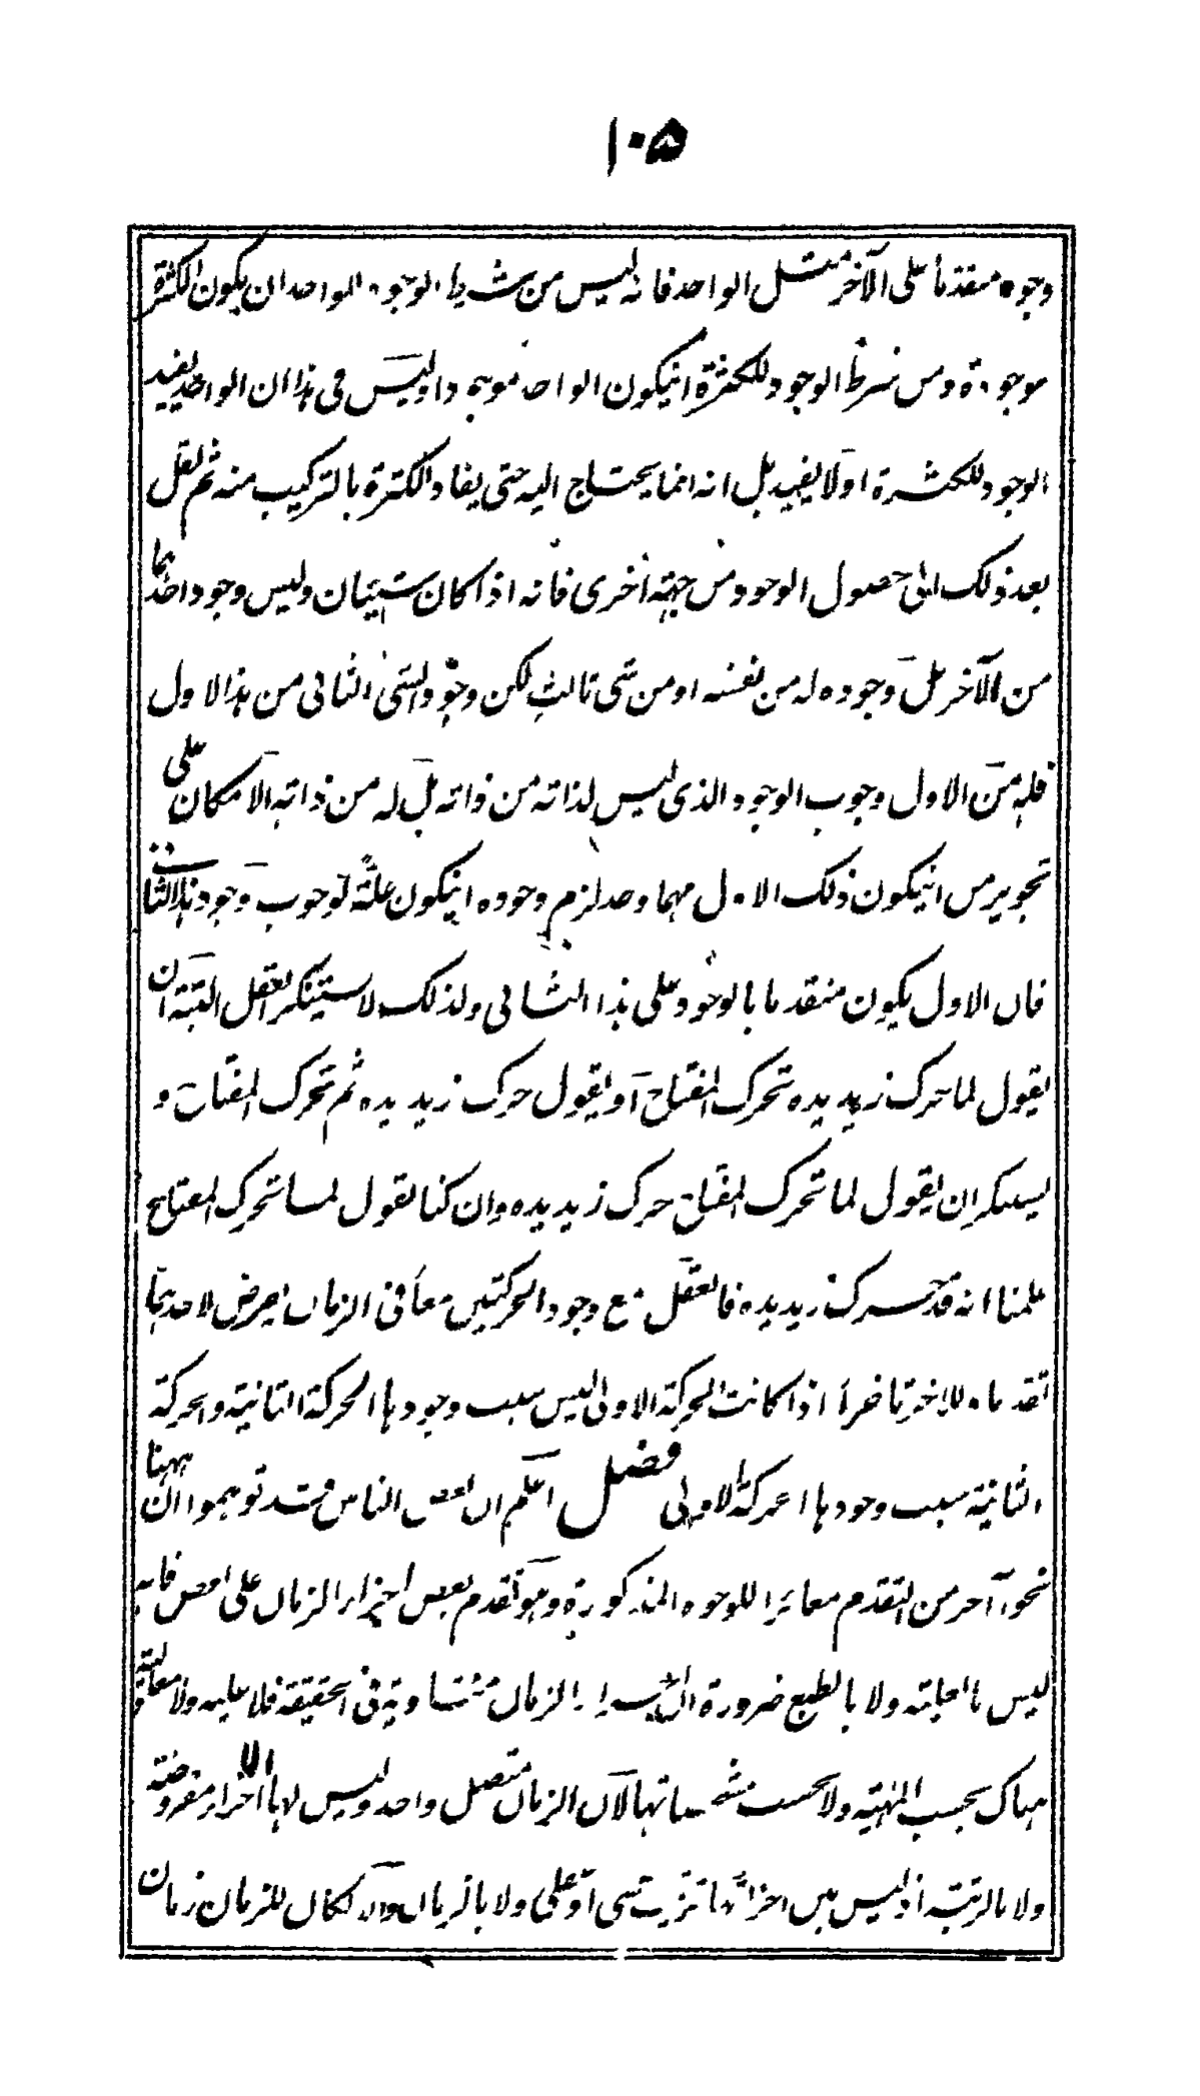 ١٠۵
وجوه متقدما على الآخر مثل الواحد فانه ليس من شرط الوجود الواحد ان يكون الكثرة
موجودة ومن شرط الوجود للكثرة انيكون الواحد موجودا وليس فى هذا ان الواحد يفيد
الوجود للكثرة اولا يفيد بل انه انما يحتاج اليه حتى يفاد الكثرة بالتركيب منه ثم لنقل
بعد ذلك الى حصول الوجود من جهة اخرى فانه اذا كان شيئان وليس وجود احدهما
من الآخر بل وجوده له من نفسه او من شى ثالث لكن وجود الشى الثانى من هذا الاول
فله من الاول وجوب الوجود الذى ليس لذاته من ذاته بل له من ذاته الامكان على
تجويز من انيكون ذلك الاول مهما وجد لزم وجوده انيكون علة لوجوب وجود هذا الثانى
فان الاول يكون متقدما بالوجود على هذا الثانى ولذلك لا يستنكر العقل البتة ان
يقول لما حرك زيد يده تحرك المفتاح او يقول حرك زيد يده ثم تحرك المفتاح و
يستنكر ان يقول لما تحرك المفتاح حرك زيد يده وان كنا نقول لما تحرك المفتاح
علمنا انه قد حرك زيد يده فالعقل مع وجود الحركتين معا فى الزمان يعرض لاحدهما
تقدما وللاخر تاخرا اذا كانت الحركة الاولى ليس سبب وجودها الحركة الثانية والحركة
الثانية سبب وجودها الحركة الاولى فصل اعلم ان بعض الناس قد توهموا ان ههنا
نحوا آخر من التقدم مغائرا للوجوه المذكورة وهو تقدم بعض اجزاء الزمان على بعض فانه
ليس بالعلية ولا بالطبع ضرورة ان اجزاء الزمان متشاوية فى الحقيقة فلا علية ولا معلولية
هناك بحسب المهية ولا بحسب تشخصاتها لان الزمان متصل واحد وليس لها الا اجزاء مفروضة
ولا بالرتبة اذ ليس بين اجزائها ترتيب حسى او عقلى ولا بالزمان والا لكان للزمان زمان